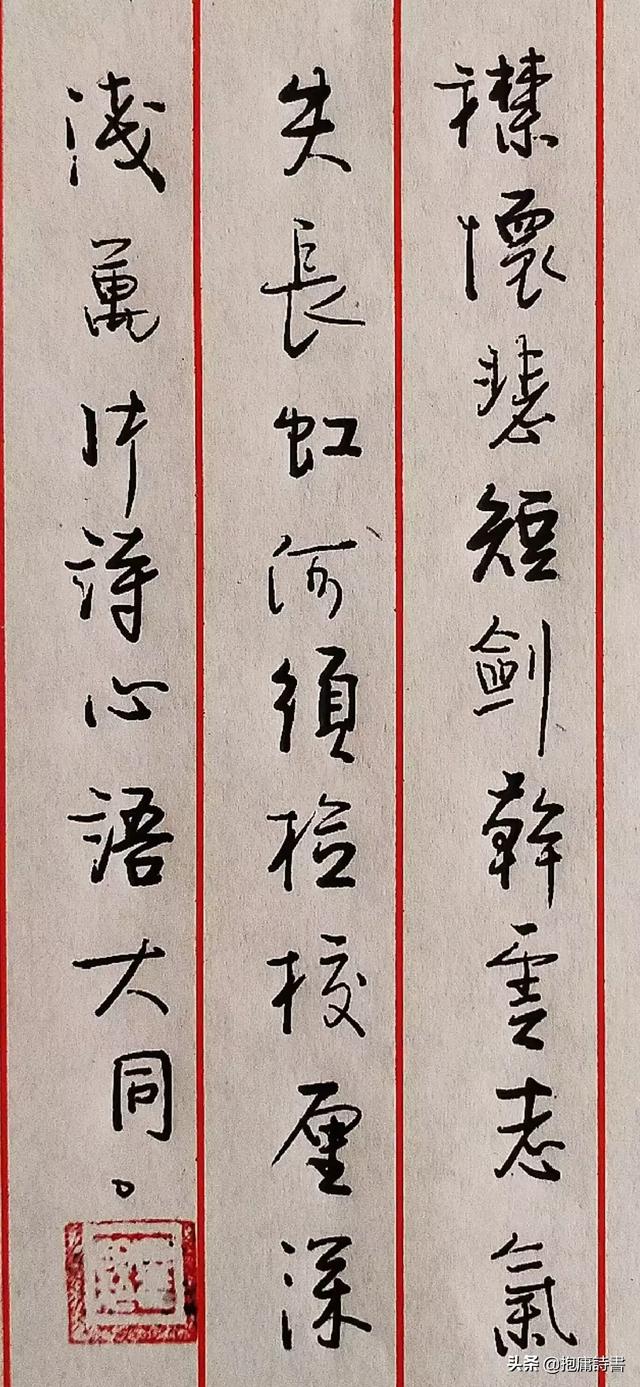 襟懷悲短劍幹雲志氣
失長虹何須檢校壓深
淺萬片詩心語大同。
头条 @抱庸詩書